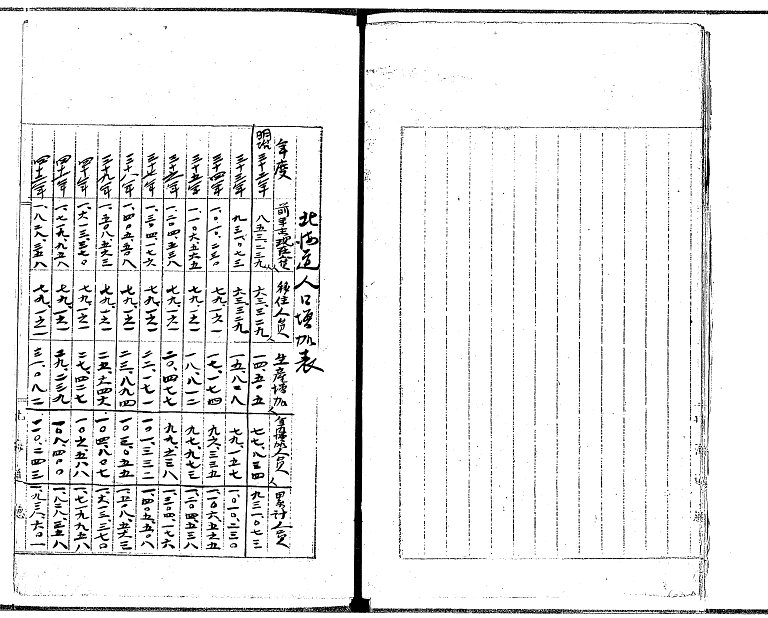 北海道人口増加表
年度 前年末現在数 移住人員 生産増加 全増加人員 累計人員
明治三十二年 八五三、二三九人 六三、三二九人 一四、五〇五人 七七、八三四人 九三一、〇七三
三十三年 九三一、〇七三 六三、三二九 一五、八二八 七九、一五七 一、〇一〇、二三〇
三十四年 一、〇一〇、二三〇 七九、一六一 一七、一七四 九六、三三五 一、一〇六、五六五
三十五年 一、一〇六、五六五 七九、一六一 一八、八一二 九七、九七三 一、二〇四、五三八
三十六年 一、二〇四、五三八 七九、一六一 二〇、四七七 九九、六三八 一、三〇四、一七六
三十七年 一、三〇四、一七六 七九、一六一 二二、一七一 一〇一、三三二 一、四〇五、五〇八
三十八年 一、四〇五、五〇八 七九、一六一 二三、八九四 一〇三、〇五五 一、五〇八、五六三
三十九年 一、五〇八、五六三 七九、一六一 二五、六四六 一〇四、八〇七 一、六一三、三七〇
四十年 一、六一三、三七〇 七九、一六一 二七、四二七 一〇六、五八八 一、七一九、九五八
四十一年 一、七一九、九五八 七九、一六一 二九、二三九 一〇八、四〇〇 一、八二八、三五八
四十二年 一、八二八、三五八 七九、一六一 三一、〇八二 一一〇、二四三 一、九三八、六〇一